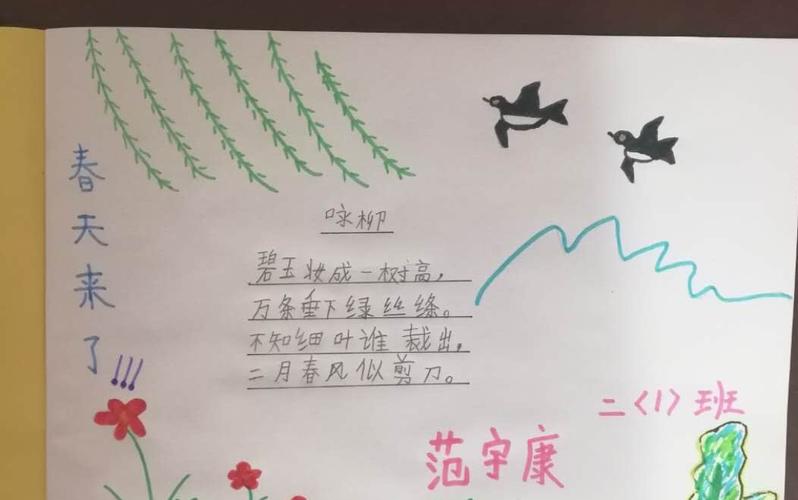 春天来了!!!
咏柳
碧玉妆成一树高，
万条垂下绿丝绦。
不知细叶谁裁出，
二月春风似剪刀。
二〈1〉班
范宇康